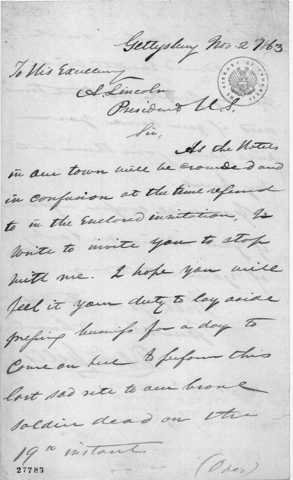 Gettysburg Nov. 2 1863
To His Excellency
A. Lincoln
President U. S.
Sir,
As the Hotels
in our town will be crowded and
in confusion at the time refered
to in the enclosed invitation, I
write to invite you to stop
with me. I hope you will
feel it your duty to lay aside
pressing business for a day to
come on here to perform this
last sad rite to our brave
soldier dead on the
19th instant.
27783
(Over)